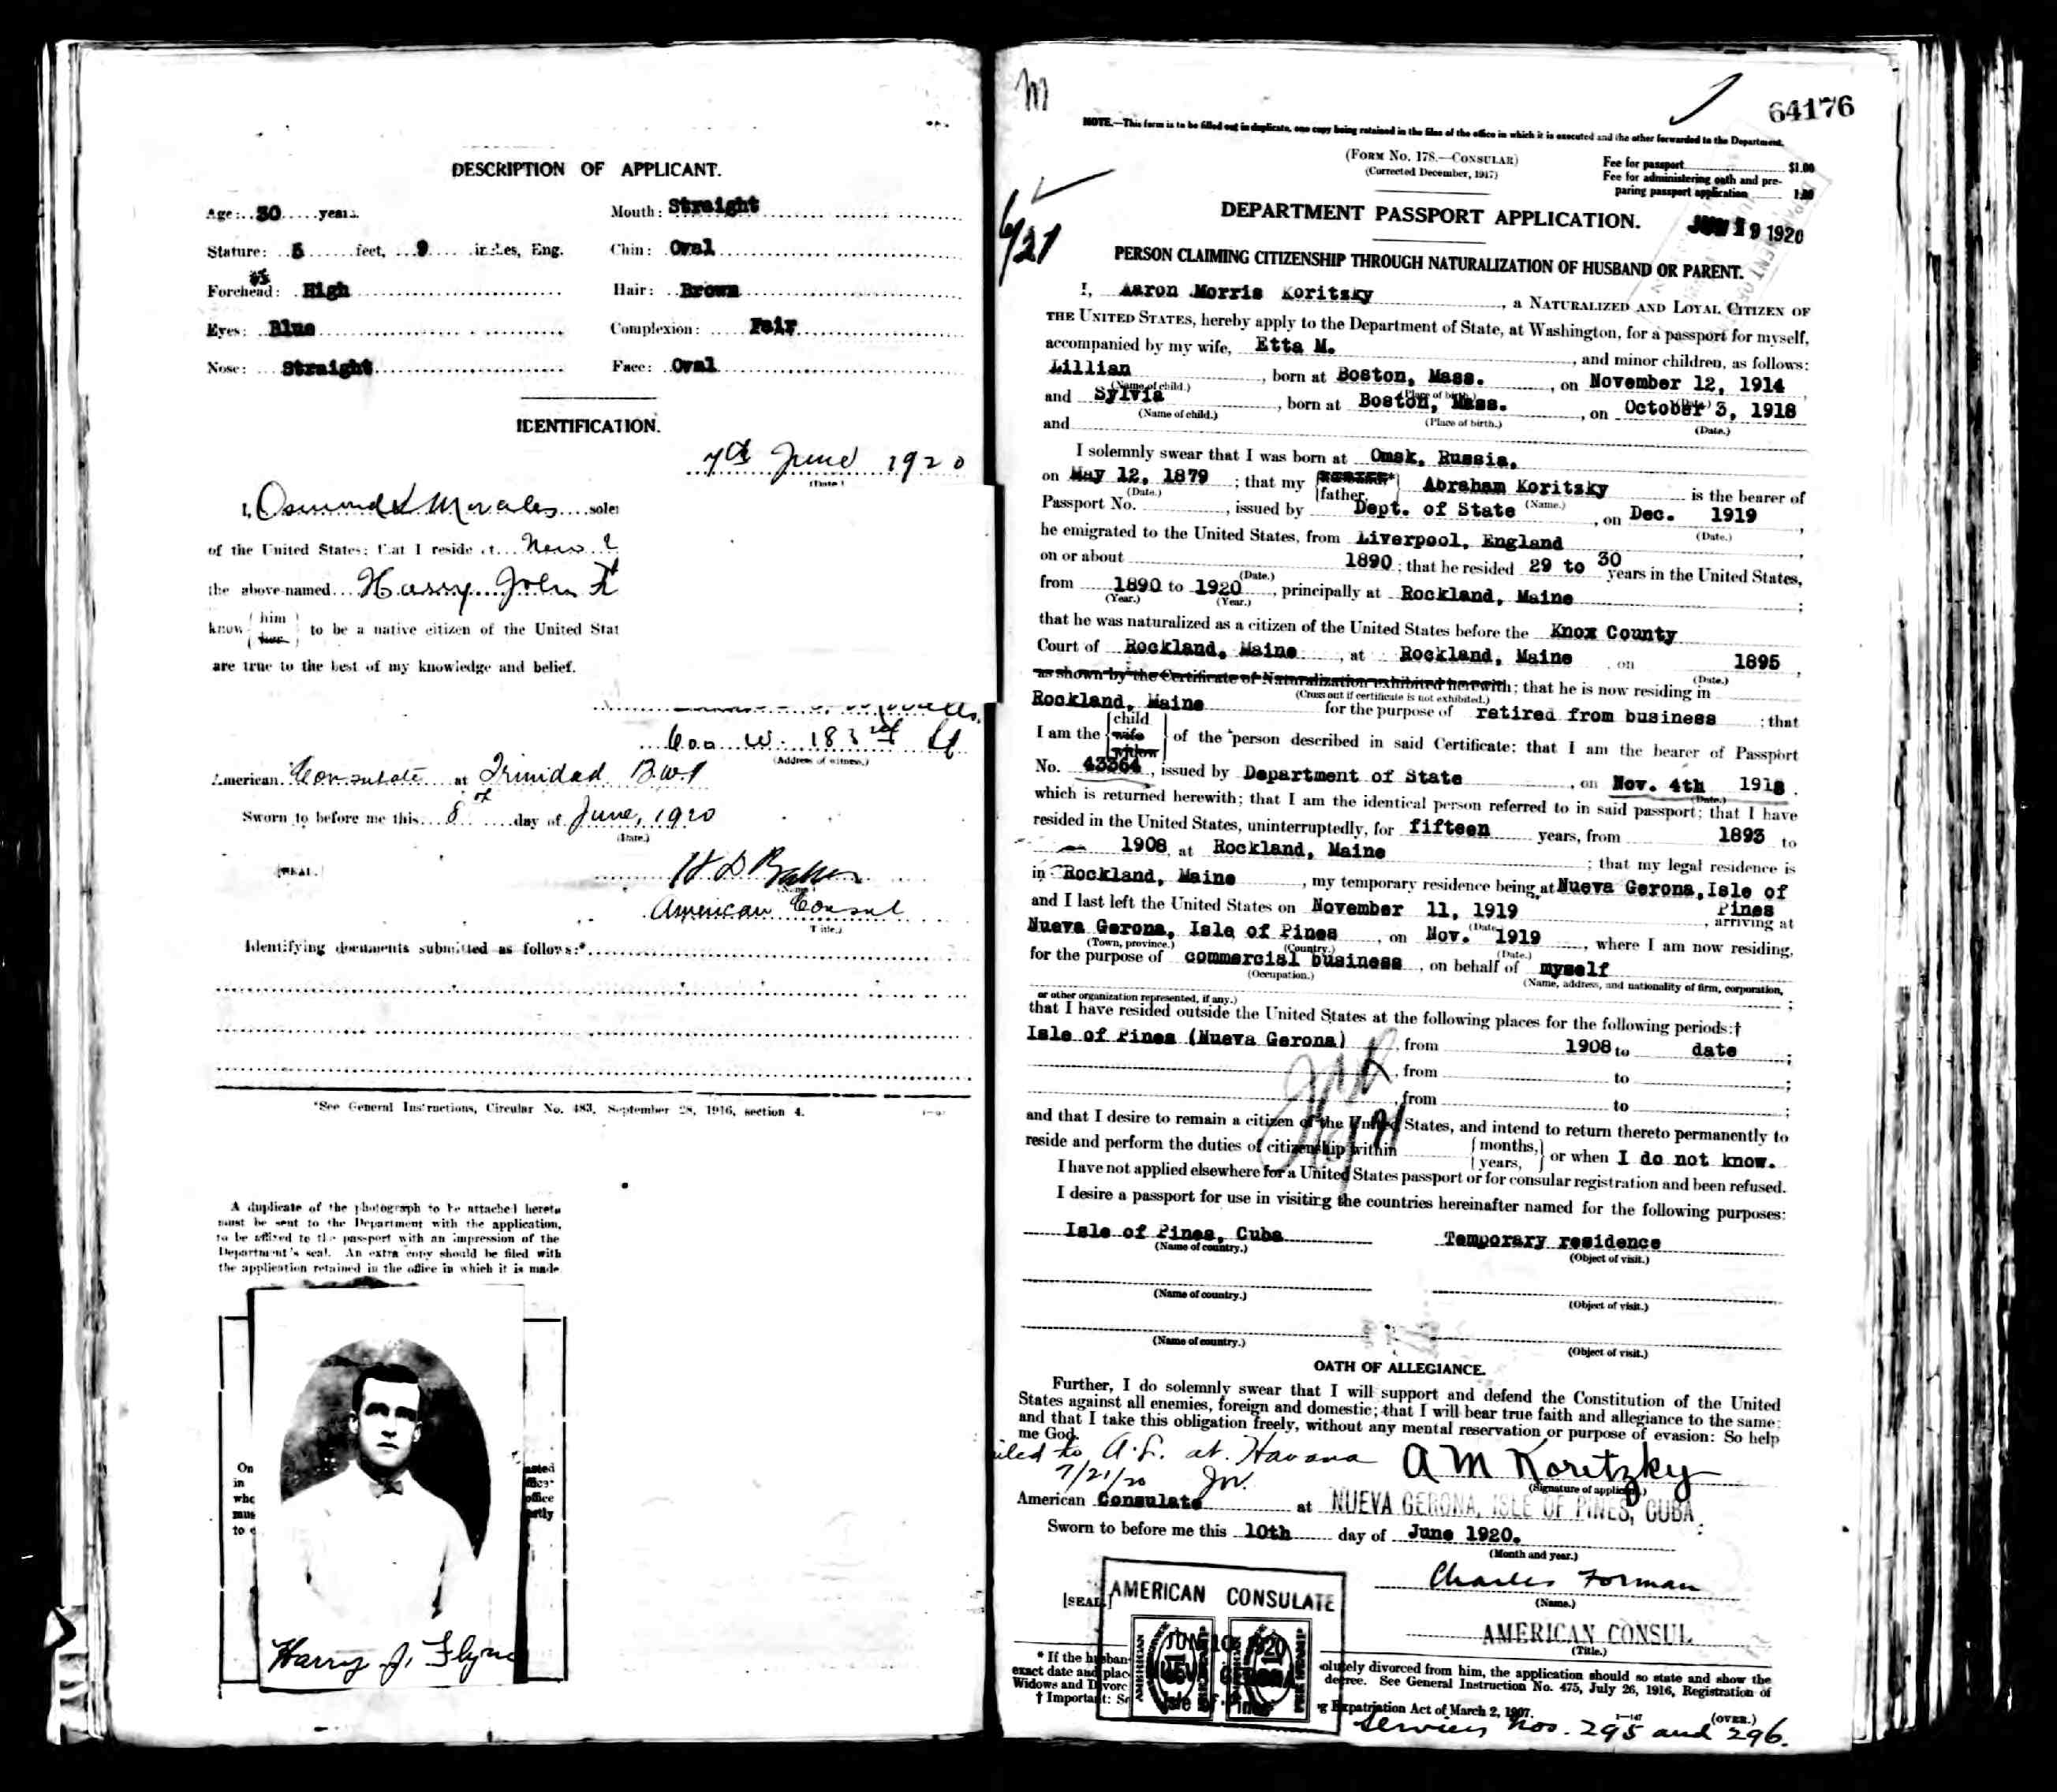 DESCRIPTION OF APPLICANT.
Age: 30 years.
Mouth: Straight
Stature: 5 feet, 9 inches, Eng.
Chin: Oval
Forehead: High
Hair: Brown
Eyes: Blue
Complexion: Fair
Nose: Straight
Face: Oval
IDENTIFICATION.
7th June 1920
(Date.)
I, Osmund L Morales sole
of the United States; that I reside at New
the above-named Harry John
know { him } to be a native citizen of the United Stat
are true to the best of my knowledge and belief.
W. 183rd St
(Address of witness.)
American Consulate at Trinidad B.W.I
Sworn to before me this 8th day of June, 1920
(Date.)
[SEAL.]
H D Baker
American Consul
Title.
Identifying documents submitted as follows:*
*See General Instructions, Circular No. 483, September 28, 1916, section 4.
A duplicate of the photograph to be attached hereto
must be sent to the Department with the application,
to be affixed to the passport with an impression of the
Department's seal. An extra copy should be filed with
the application retained in the office in which it is made
On
in
who
mus
to
office
Harry J. Flynn
M
64176
NOTE.—This form is to be filled out in duplicate, one copy being retained in the files of the office in which it is executed and the other forwarded to the Department.
(FORM NO. 178.—CONSULAR)
(Corrected December, 1917)
Fee for passport $1.00
Fee for administering oath and pre-
paring passport application 1.00
6/21
DEPARTMENT PASSPORT APPLICATION.
JUN 19 1920
PERSON CLAIMING CITIZENSHIP THROUGH NATURALIZATION OF HUSBAND OR PARENT.
I, Aaron Morris Koritsky, a NATURALIZED AND LOYAL CITIZEN OF
THE UNITED STATES, hereby apply to the Department of State, at Washington, for a passport for myself,
accompanied by my wife, Etta M., and minor children, as follows:
Lillian, born at Boston, Mass., on November 12, 1914
(Name of child.) (Place of birth.) (Date.)
and Sylvia, born at Boston, Mass., on October 3, 1918
(Name of child.) (Place of birth.) (Date.)
and
I solemnly swear that I was born at Omsk, Russia,
on May 12, 1879; that my father, Abraham Koritsky is the bearer of
(Date.) (Name.)
Passport No. , issued by Dept. of State, on Dec. 1919,
(Date.)
he emigrated to the United States, from Liverpool, England,
on or about 1890; that he resided 29 to 30 years in the United States,
(Date.)
from 1890 to 1920, principally at Rockland, Maine;
(Year.) (Year.)
that he was naturalized as a citizen of the United States before the Knox County
Court of Rockland, Maine, at Rockland, Maine on 1895,
(Date.)
as shown by the Certificate of Naturalization exhibited herewith; that he is now residing in
(Cross out if certificate is not exhibited.)
Rockland, Maine for the purpose of retired from business; that
I am the { child wife widow } of the person described in said Certificate; that I am the bearer of Passport
No. 43364, issued by Department of State, on Nov. 4th 1918.
(Date.)
which is returned herewith; that I am the identical person referred to in said passport; that I have
resided in the United States, uninterruptedly, for fifteen years, from 1893 to
1908, at Rockland, Maine; that my legal residence is
in Rockland, Maine, my temporary residence being at Nueva Gerona, Isle of
Pines
and I last left the United States on November 11, 1919, arriving at
(Date.)
Nueva Gerona, Isle of Pines, on Nov. 1919, where I am now residing,
(Town, province.) (Country.) (Date.)
for the purpose of commercial business, on behalf of myself
(Occupation.) (Name, address, and nationality of firm, corporation,
or other organization represented, if any.);
that I have resided outside the United States at the following places for the following periods:†
Isle of Pines (Nueva Gerona), from 1908 to date;
, from to ;
, from to ;
and that I desire to remain a citizen of the United States, and intend to return thereto permanently to
reside and perform the duties of citizenship within { months, years, } or when I do not know.
I have not applied elsewhere for a United States passport or for consular registration and been refused.
I desire a passport for use in visiting the countries hereinafter named for the following purposes:
Isle of Pines, Cuba Temporary residence
(Name of country.) (Object of visit.)
(Name of country.) (Object of visit.)
(Name of country.) (Object of visit.)
OATH OF ALLEGIANCE.
Further, I do solemnly swear that I will support and defend the Constitution of the United
States against all enemies, foreign and domestic; that I will bear true faith and allegiance to the same;
and that I take this obligation freely, without any mental reservation or purpose of evasion: So help
me God.
iled to A.L. at Havana
7/21/20
A M Koritzky
(Signature of applicant.)
American Consulate at NUEVA GERONA, ISLE OF PINES, CUBA
Sworn to before me this 10th day of June 1920.
(Month and year.)
Charles Forman
(Name.)
[SEAL.]
AMERICAN CONSULATE
JUN 10 1920
NUEVA GERONA
Isle of Pines
AMERICAN CONSUL
(Title.)
* If the husban olutely divorced from him, the application should so state and show the
exact date and plac decree. See General Instruction No. 475, July 26, 1916, Registration of
Widows and Divorc
† Important: Se g Expatriation Act of March 2, 1907.
1—147
(OVER.)
Services Nos. 295 and 296.